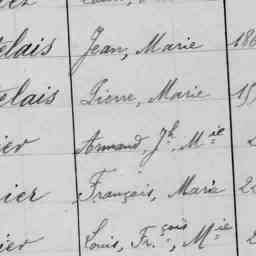 elais Jean, Marie 186
elais Pierre, Marie 19
ier Armand, Jh. Mie
nier François, Marie 2
ier Louis, Fr.çois, Mie 2